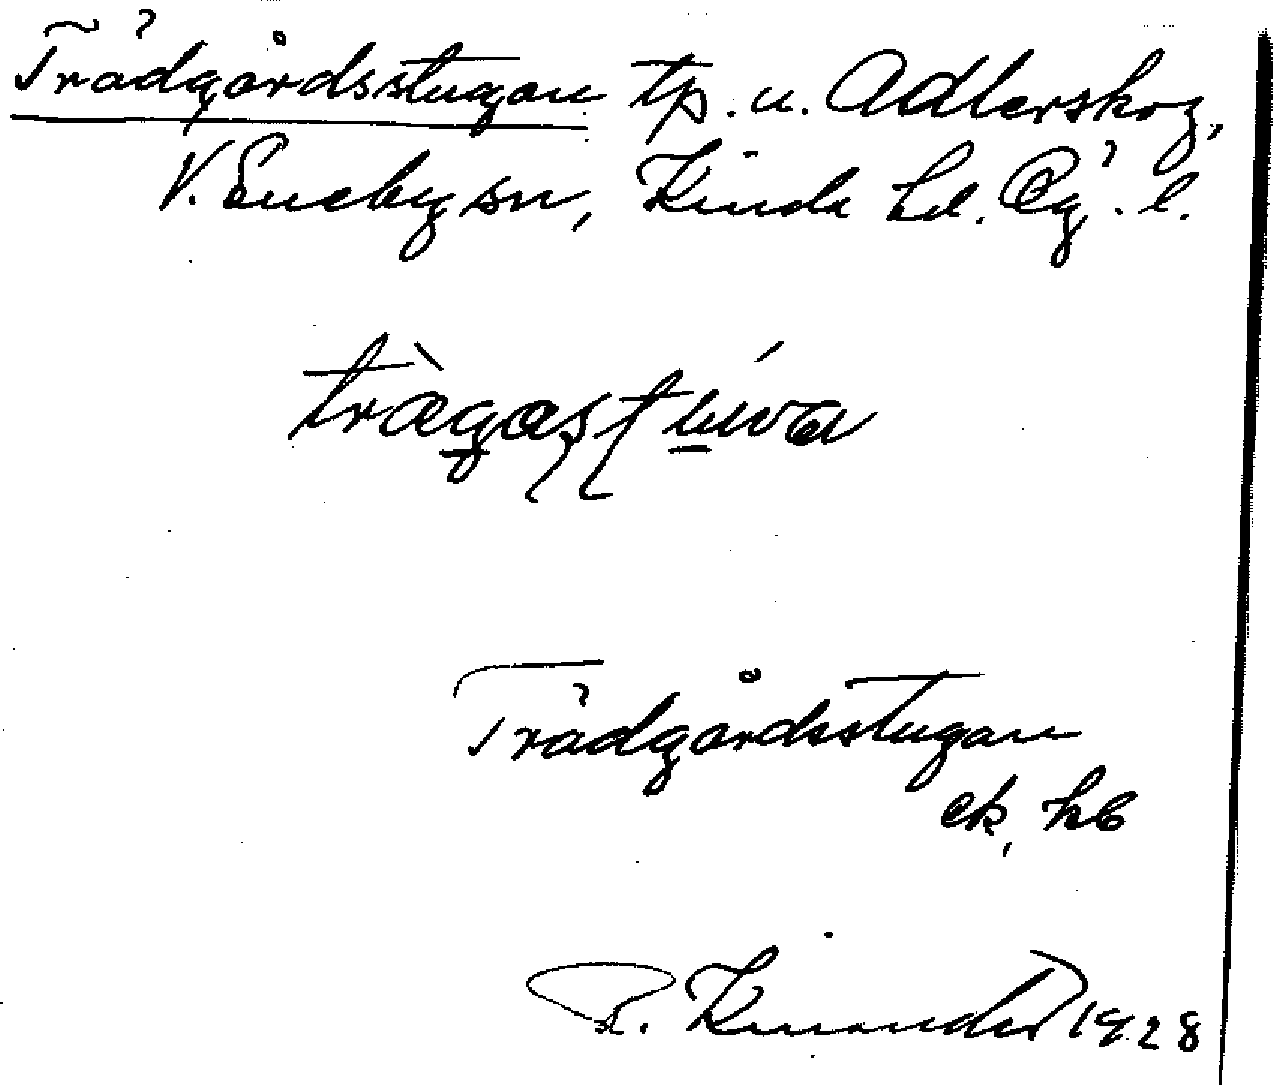 Trädgårdsstugan tp. u. Adlerskog,
V. Eneby sn, Kinda hd. Ög. l.
Trädgårdsstugan
ek, hb
R. Kinander 1928